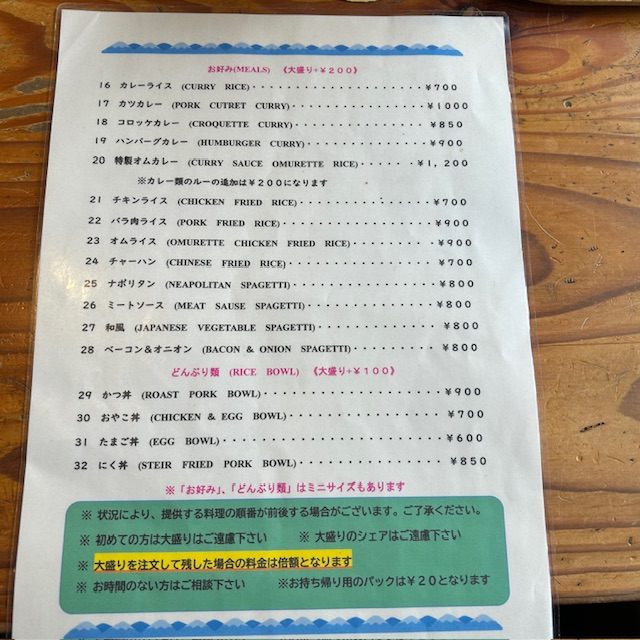 お好み(MEALS) 《大盛り+¥200》
16 カレーライス (CURRY RICE)・・・・・・・・・・・・・・・・・・・・・・¥700
17 カツカレー (PORK CUTRET CURRY)・・・・・・・・・・・・・・・・・¥1000
18 コロッケカレー (CROQUETTE CURRY)・・・・・・・・・・・・・・・・・¥850
19 ハンバーグカレー (HUMBURGER CURRY)・・・・・・・・・・・・・・・・¥900
20 特製オムカレー (CURRY SAUCE OMURETTE RICE)・・・・・・¥1,200
※カレー類のルーの追加は¥200になります
21 チキンライス (CHICKEN FRIED RICE)・・・・・・・・・・・・・・・・・¥700
22 バラ肉ライス (PORK FRIED RICE)・・・・・・・・・・・・・・・・・・・¥900
23 オムライス (OMURETTE CHICKEN FRIED RICE)・・・・・・・・・・¥900
24 チャーハン (CHINESE FRIED RICE)・・・・・・・・・・・・・・・・・・¥700
25 ナポリタン (NEAPOLITAN SPAGETTI)・・・・・・・・・・・・・・・・・¥800
26 ミートソース (MEAT SAUSE SPAGETTI)・・・・・・・・・・・・・・・・¥800
27 和風 (JAPANESE VEGETABLE SPAGETTI)・・・・・・・・・・・・・・¥800
28 ベーコン&オニオン (BACON & ONION SPAGETTI)・・・・・・・・・・¥800
どんぶり類 (RICE BOWL) 《大盛り+¥100》
29 かつ丼 (ROAST PORK BOWL)・・・・・・・・・・・・・・・・・・・・¥900
30 おやこ丼 (CHICKEN & EGG BOWL)・・・・・・・・・・・・・・・・・・¥700
31 たまご丼 (EGG BOWL)・・・・・・・・・・・・・・・・・・・・・・・・¥600
32 にく丼 (STEIR FRIED PORK BOWL)・・・・・・・・・・・・・・・・・¥850
※「お好み」、「どんぶり類」はミニサイズもあります
※ 状況により、提供する料理の順番が前後する場合がございます。ご了承ください。
※ 初めての方は大盛りはご遠慮下さい ※ 大盛りのシェアはご遠慮下さい
※ 大盛りを注文して残した場合の料金は倍額となります
※ お時間のない方はご相談下さい ※お持ち帰り用のパックは¥20となります